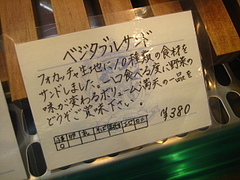 ベジタブルサンド
フォカッチャ生地に、10種類の食材を
サンドしました。一口食べる度に野菜の
味が変わるボリューム満天の一品を
どうぞご賞味下さい。
¥380